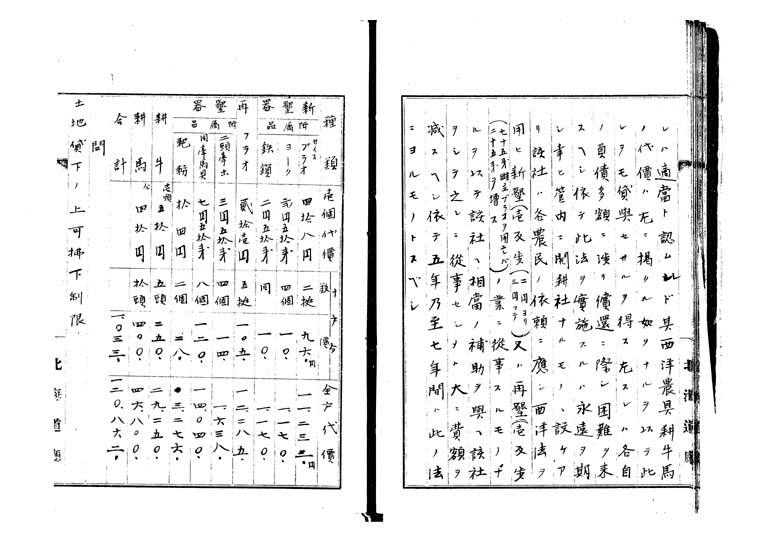 レハ適當ト認ムレド具西洋農具耕牛馬
ノ代價ハ尤ニ掲クル如クナルヲ以テ此
レヲモ貸與セサルヲ得ス左スレハ各自
ノ負債多額ニ渉リ償還ニ際シ困難ヲ來
スヘシ依テ此法ヲ實施スルハ永遠ヲ期
シ幸ヒ管内ニ開耕社ナルモノノ設ケア
リ該社ハ各農民ノ依頼ニ應シ西洋法ヲ
用ヒ新墾(壱反歩二円ヨリ三円マテ)又ハ再墾(壱反歩
七十五銭
二十五銭ヲ増ス)ノ業ニ從事スルモノナ
ルヲ以テ該社ヘ相當ノ補助ヲ與ヘ該社
ヲシテ之レニ從事セシメハ大ニ費額ヲ
減スヘシ依テ五年乃至七年間ハ此ノ法
ニヨルモノトスベシ
北海道廳
種類 壱個代價 十戸分 全戸代價
新墾器 プラオ 四拾八円 二挺 九六.円 一一二三二.円
附属品 ヨーク 二円五拾銭 四個 一〇. 一一七〇.
鉄鎖 二円五拾銭 同 一〇. 一一七〇.
再墾器 プラオ 貳拾壱円 五挺 一〇五. 一二二八五.
附属品 二頭牽木 三円五拾銭 四個 一四. 一六三八.
用牽馬具 七円五拾銭 八個 一二〇. 一四〇四〇.
耙耮 拾四円 二個 二八. 三二七六.
耕牛 五拾円 五頭 二五〇. 二九二五〇.
耕馬 四拾円 拾頭 四〇〇. 四六八〇〇.
合計 一〇三三. 一二〇八六一.
問
土地貸下ノ上可拂下制限
北海道廳